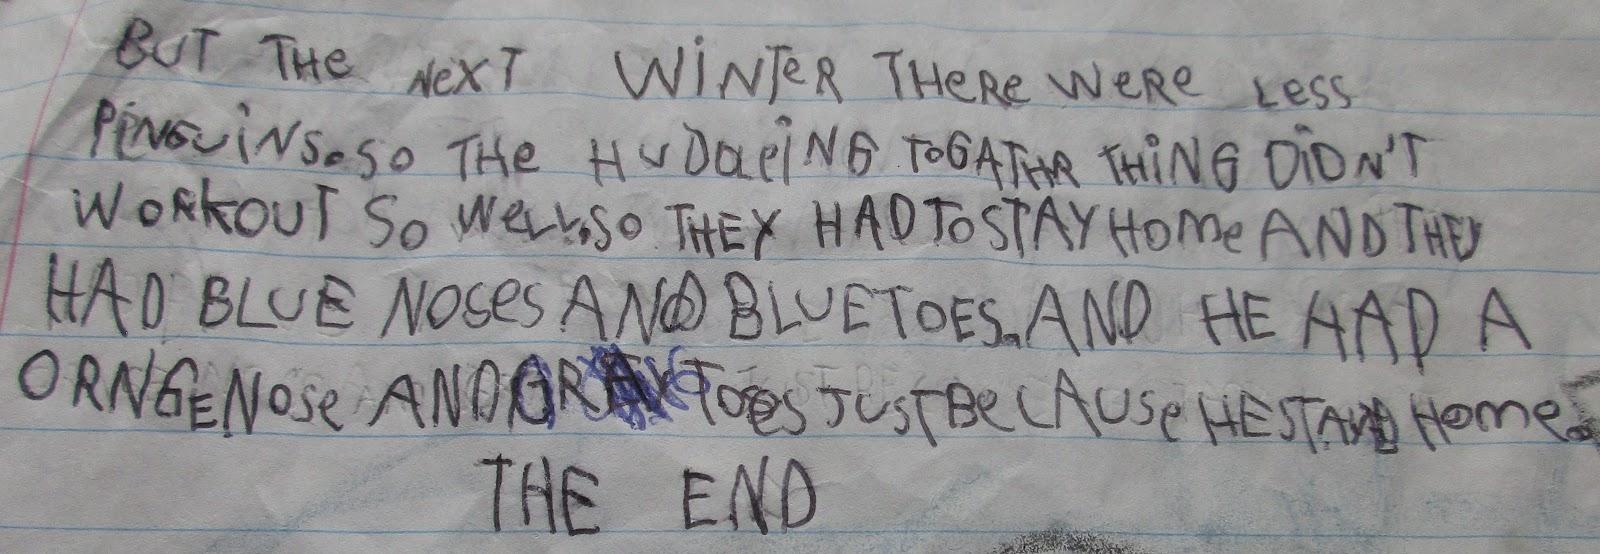 BUT THe NeXT WiNTeR THeRe WeRe Less
PiNGuiNS. SO THe HuDDLiNG TOGATHR THiNG DiDN'T
WORKOUT SO WeLL. SO THEY HAD TO STAY HOMe AND THEY
HAD BLUE NOSeS AND BLUE TOES. AND HE HAD A
ORNGE NOSe AND GRAY TOeS JUST BeCAUSe HE STAYED HOMe.
THE END